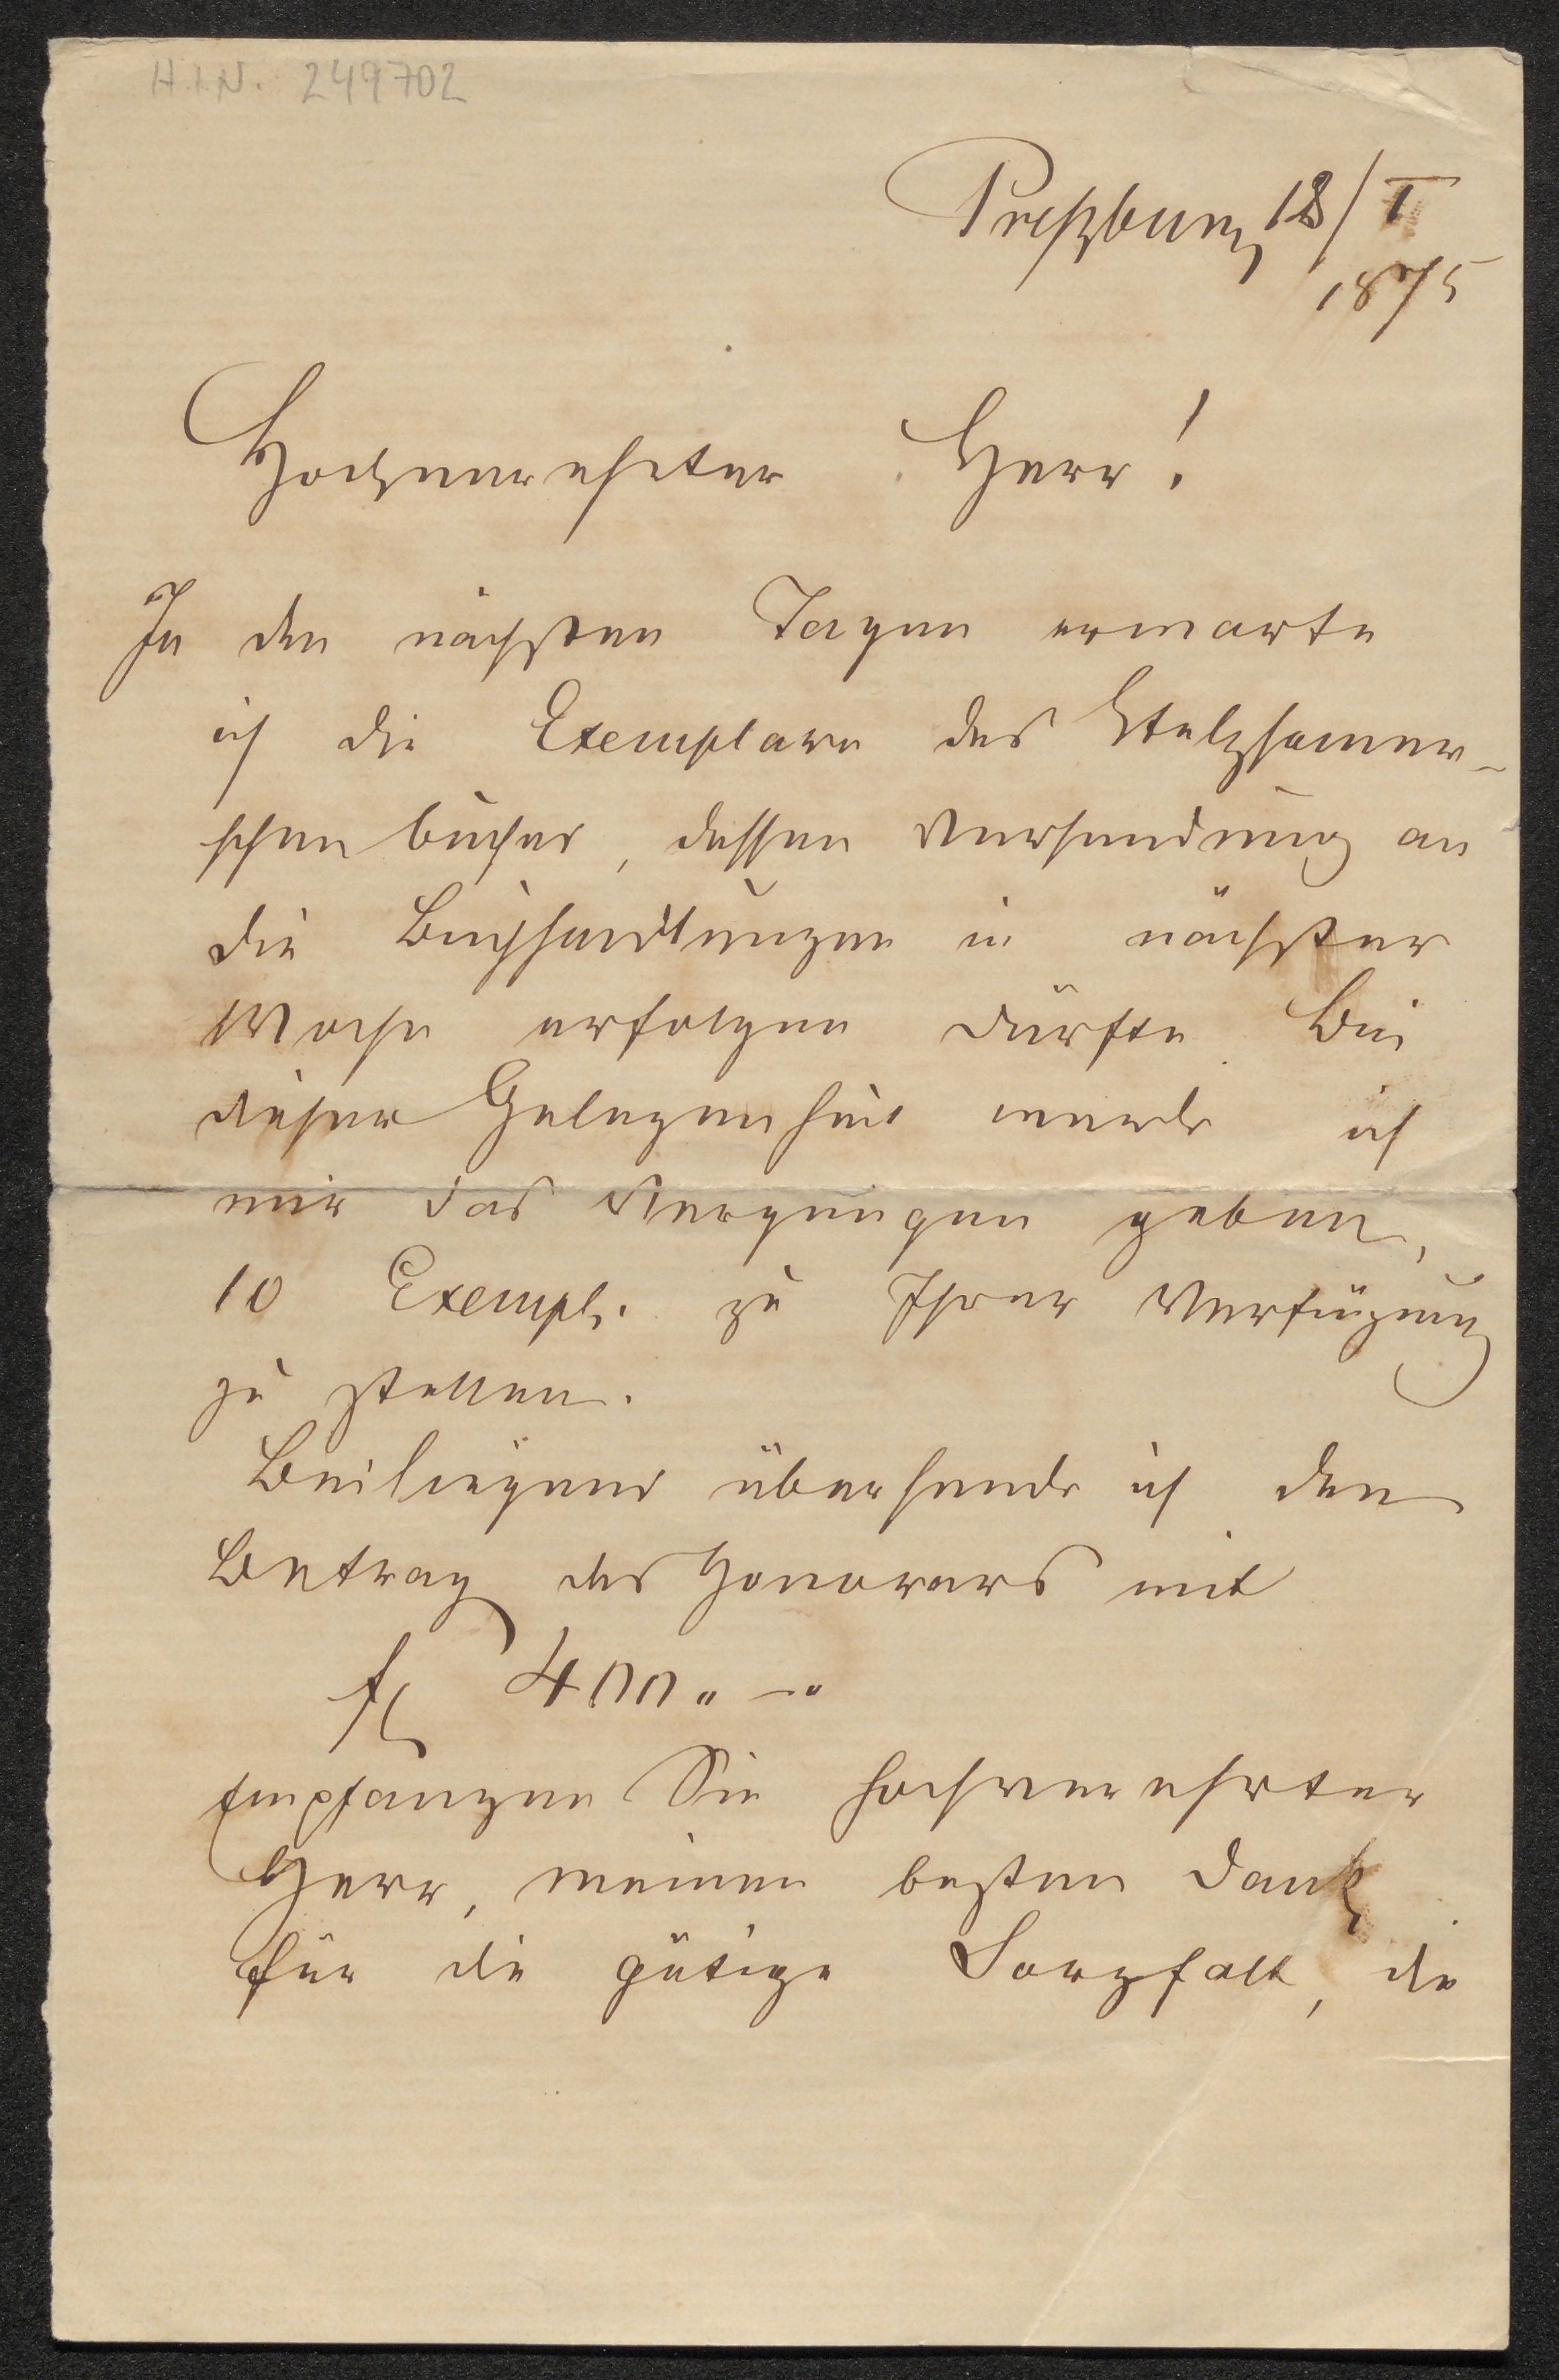 H.I.N. 249702
Preßburg 18/I
1875
Hochverehrter Herr!
In den nächsten Tagen erwarte
ich die Exemplare des Stelzhamer-
schen buches, dessen Versendung an
die Buchhandlungen in nächster
Woche erfolgen dürfte. Bei
dieser Gelegenheit werde ich
mir das Vergnügen geben,
10 Exempl. zu Ihrer Verfügung
zu stellen.
Beiliegend übersende ich den
Betrag des Honorars mit
fl 400 „ – „
Empfangen Sie hochverehrter
Herr, meinen besten Dank
für die gütige Sorgfalt, die